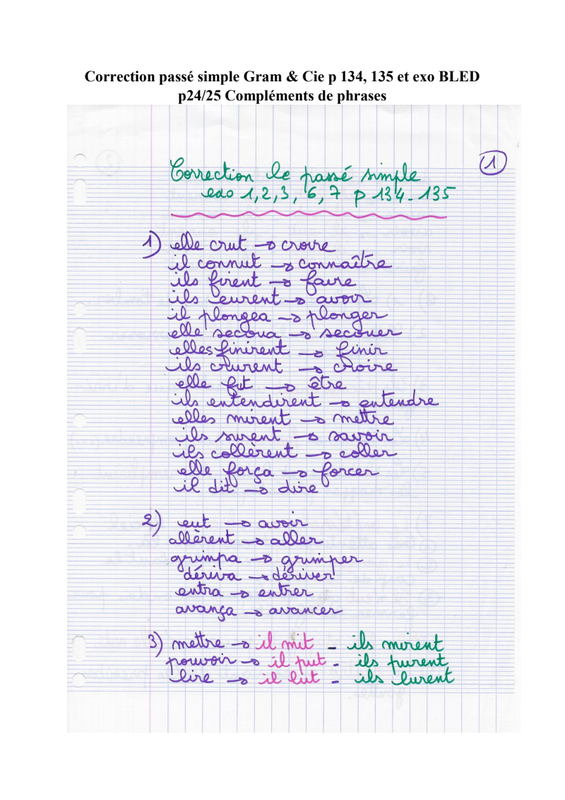 Correction passé simple Gram & Cie p 134, 135 et exo BLED
p24/25 Compléments de phrases
1
Correction le passé simple
exo 1,2,3, 6,7 p 134-135
1) elle crut → croire
il connut → connaître
ils firent → faire
ils eurent → avoir
il plongea → plonger
elle secoua → secouer
elles finirent → finir
ils crurent → croire
elle fut → être
ils entendirent → entendre
elles mirent → mettre
ils surent → savoir
ils collèrent → coller
elle força → forcer
il dit → dire
2) eut → avoir
allèrent → aller
grimpa → grimper
dériva → dériver
entra → entrer
avança → avancer
3) mettre → il mit - ils mirent
pouvoir → il put - ils purent
lire → il lut - ils lurent